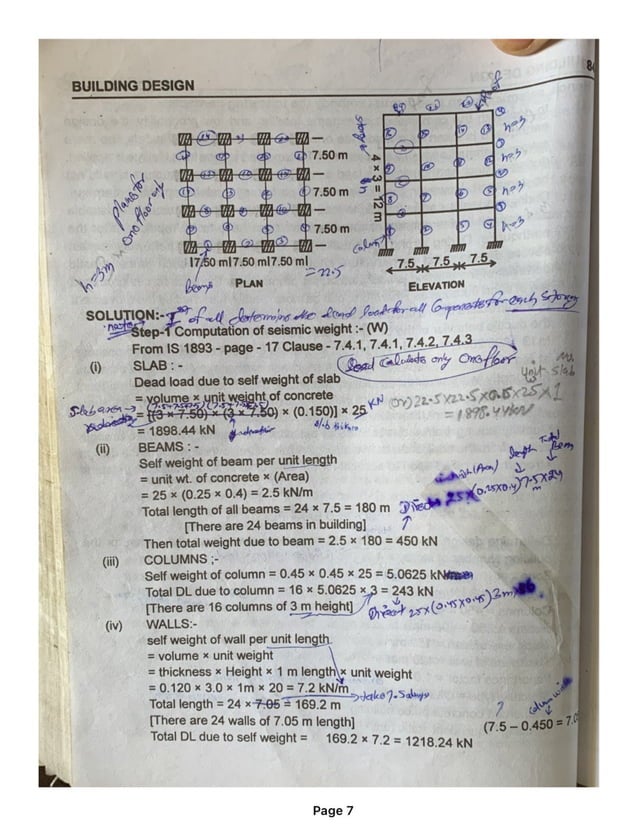 BUILDING DESIGN
7.50 m
7.50 m
7.50 m
7.50 m 7.50 m 7.50 m
= 22.5
PLAN
plans for
one floor only
h=3m
beams
4 × 3 = 12 m
7.5 7.5 7.5
ELEVATION
h=3
h=3
h=3
h=3
SOLUTION:- of all determine the dead loads for all Components for each storey
Step-1 Computation of seismic weight :- (W)
From IS 1893 - page - 17 Clause - 7.4.1, 7.4.1, 7.4.2, 7.4.3
Dead Calculate only One floor
(i) SLAB : -
Dead load due to self weight of slab
= volume × unit weight of concrete
Slab area →
= [(3 × 7.50) × (3 × 7.50) × (0.150)] × 25 KN
(or) 22.5×22.5×0.15×25×1
= 1898.44 kN
unit slab
= 1898.44 KN
(ii) BEAMS : -
Self weight of beam per unit length
= unit wt. of concrete × (Area)
= 25 × (0.25 × 0.4) = 2.5 kN/m
Total length of all beams = 24 × 7.5 = 180 m
Direct 25×(0.25×0.4)7.5×24
length Total Beam
[There are 24 beams in building]
Then total weight due to beam = 2.5 × 180 = 450 kN
(iii) COLUMNS :-
Self weight of column = 0.45 × 0.45 × 25 = 5.0625 kN
Total DL due to column = 16 × 5.0625 × 3 = 243 kN
[There are 16 columns of 3 m height]
Direct 25×(0.45×0.45)3m×16
(iv) WALLS:-
self weight of wall per unit length
= volume × unit weight
= thickness × Height × 1 m length × unit weight
= 0.120 × 3.0 × 1m × 20 = 7.2 kN/m
Total length = 24 × 7.05 = 169.2 m
[There are 24 walls of 7.05 m length]
column width
(7.5 – 0.450 = 7.0
Total DL due to self weight = 169.2 × 7.2 = 1218.24 kN
Page 7